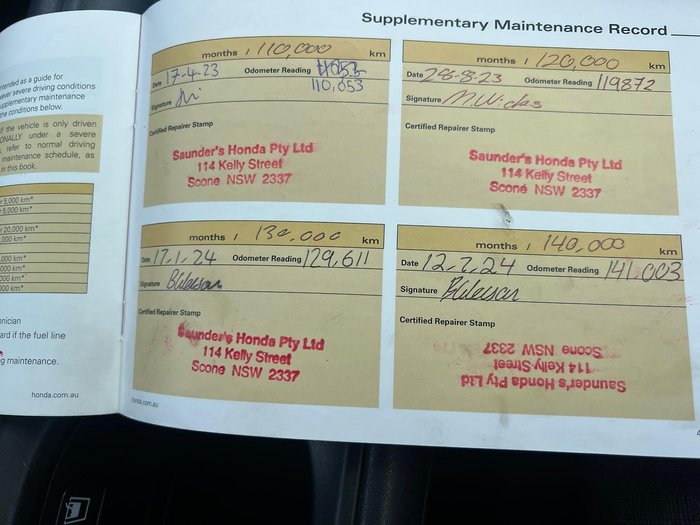 Supplementary Maintenance Record
ntended as a guide for
ever severe driving conditions
upplementary maintenance
the conditions below.
If the vehicle is only driven
ONALLY under a severe
refer to normal driving
maintenance schedule, as
in this book.
5,000 km*
5,000 km*
20,000 km*
,000 km*
,000 km*
000 km*
000 km*
000 km*
hnician
ard if the fuel line
g maintenance.
honda.com.au
months / 110,000 km
Date 17-4-23 Odometer Reading
110,053
Signature
Certified Repairer Stamp
Saunder's Honda Pty Ltd
114 Kelly Street
Scone NSW 2337
months / 120,000 km
Date 28-8-23 Odometer Reading 119872
Signature
Certified Repairer Stamp
Saunder's Honda Pty Ltd
114 Kelly Street
Scone NSW 2337
months / 130,000 km
Date 17.1.24 Odometer Reading 129,611
Signature
Certified Repairer Stamp
Saunder's Honda Pty Ltd
114 Kelly Street
Scone NSW 2337
months / 140,000 km
Date 12.7.24 Odometer Reading 141.003
Signature
Certified Repairer Stamp
Saunder's Honda Pty Ltd
114 Kelly Street
Scone NSW 2337
honda.com.au